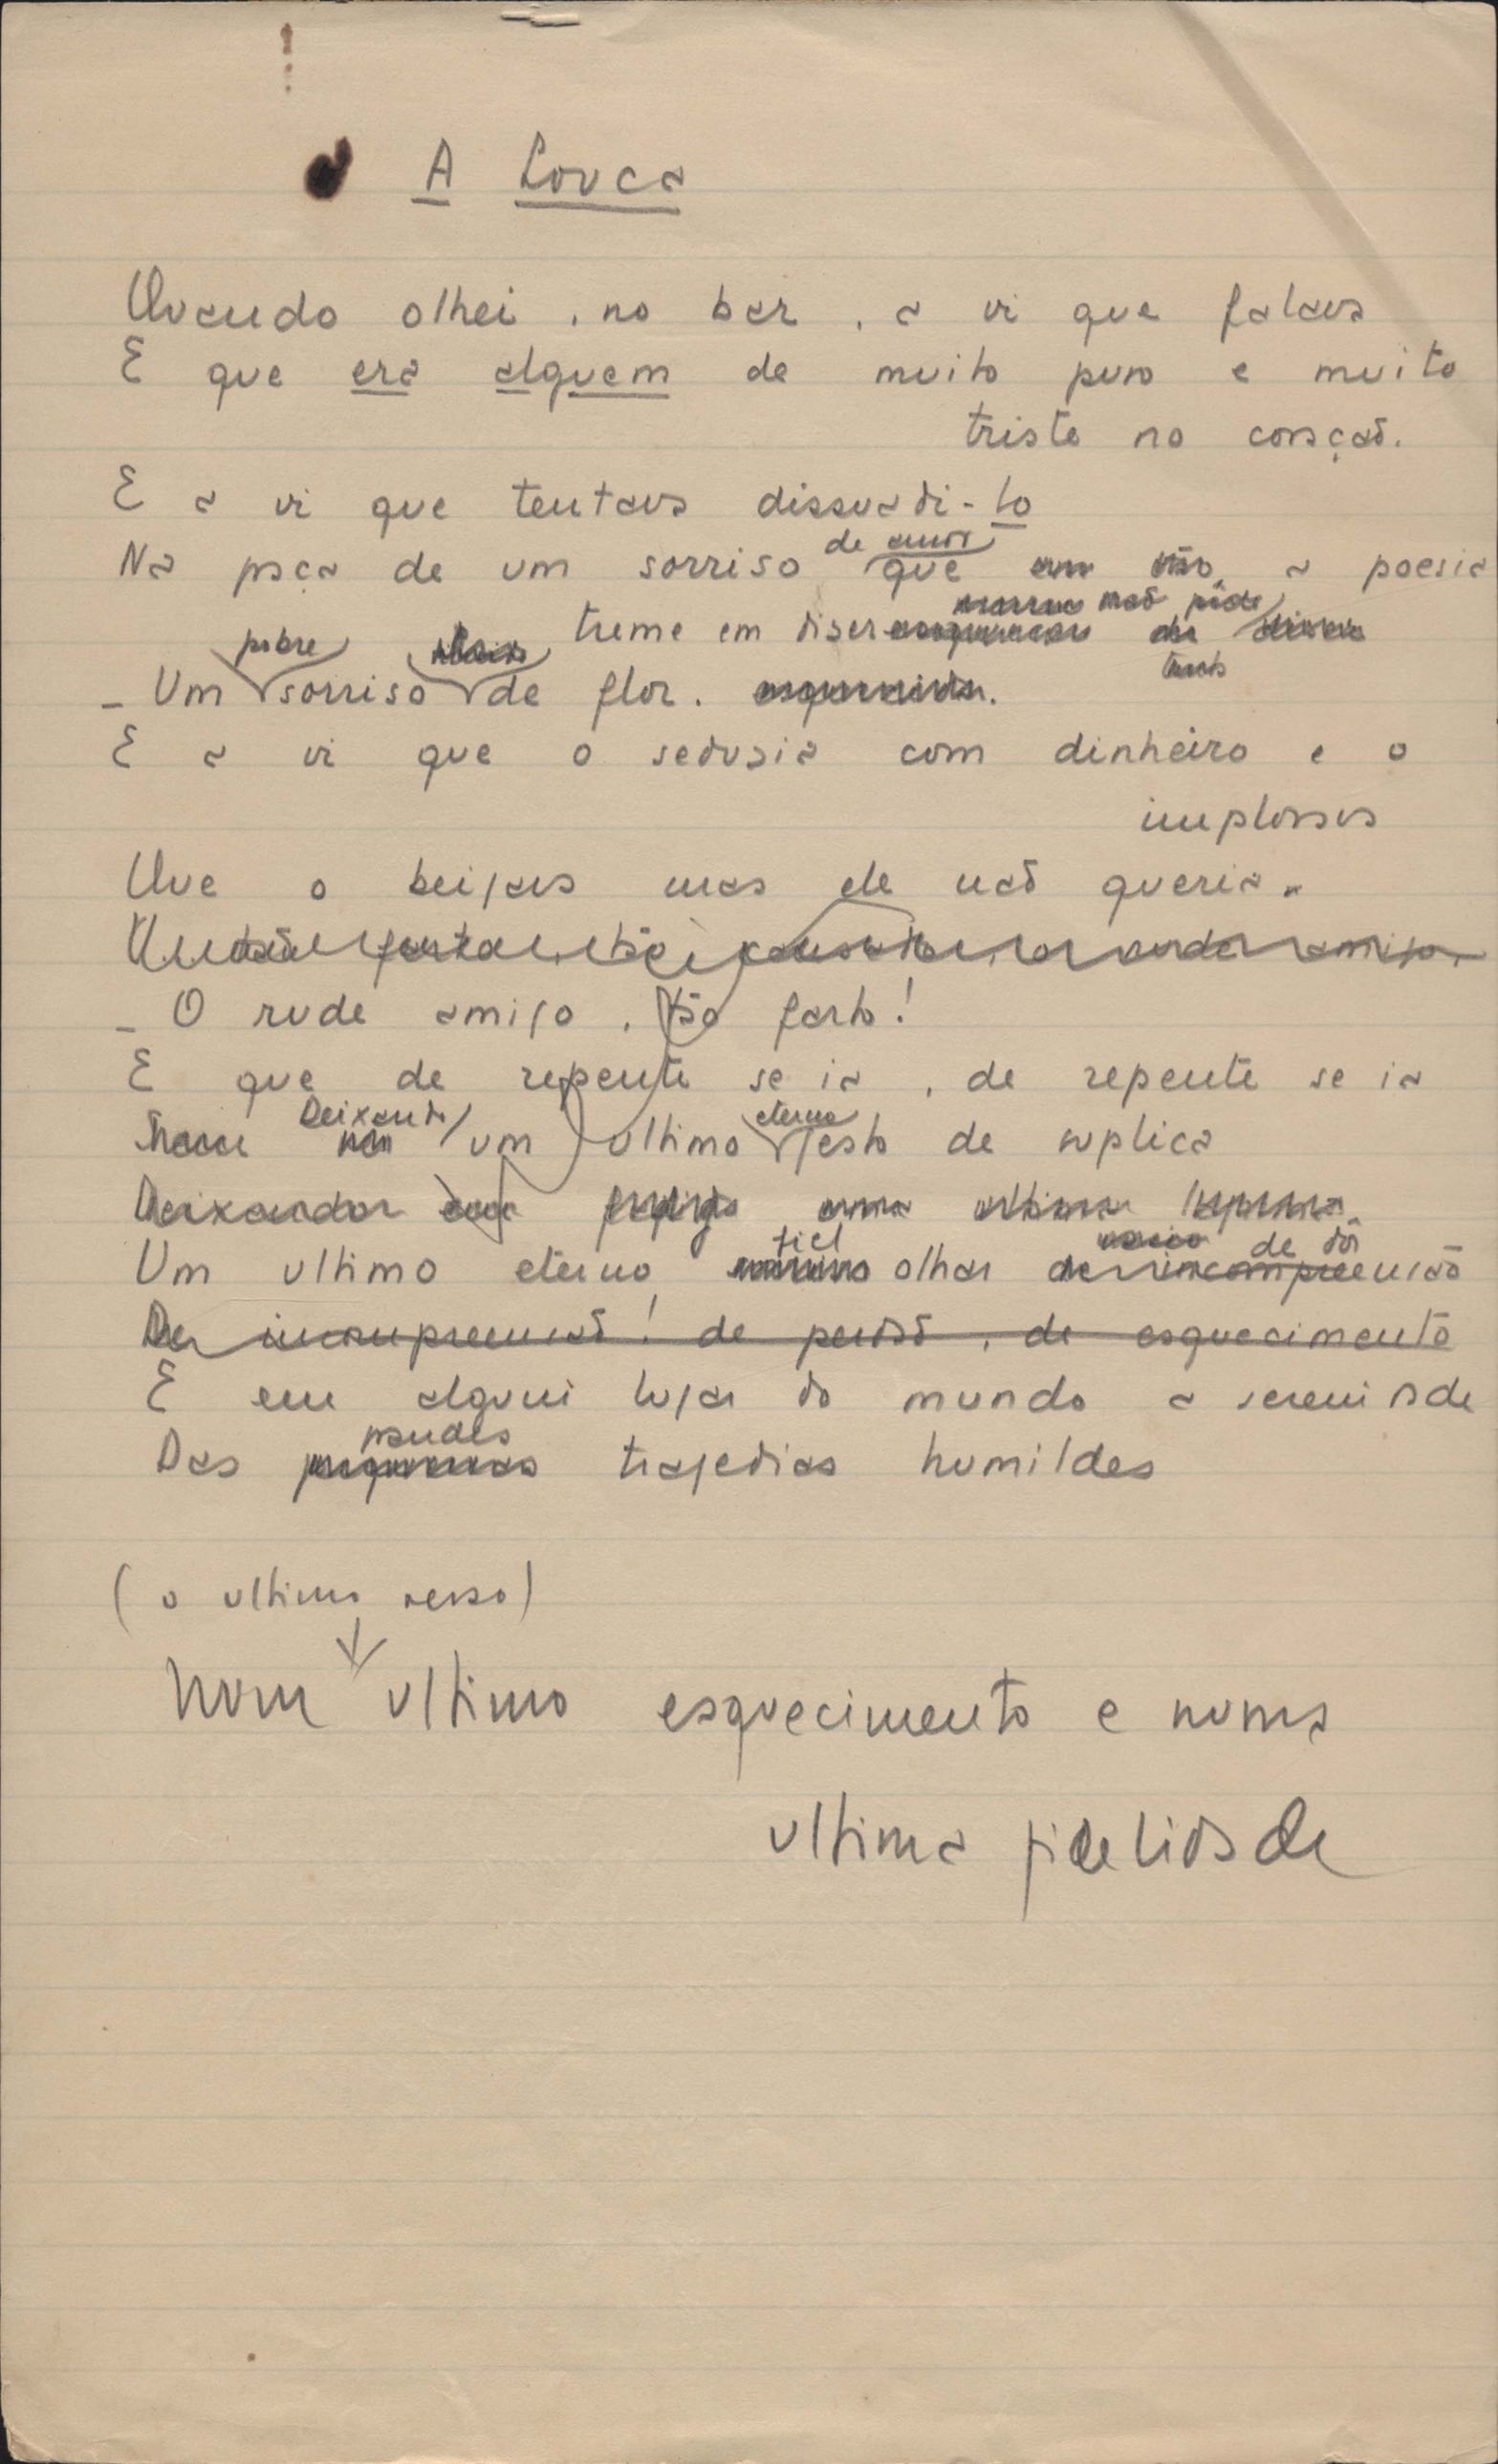 A Louca
Quando olhei, no bar, a vi que falava
E que era alguem de muito puro e muito
triste no coração.
E a vi que tentava dissuadi-lo
de amor
Na graça de um sorriso que a poesia
não póde
treme em dizer
pobre
- Um sorriso de flor.
E a vi que o seduzia com dinheiro e o
implorava
Que o beijava mas ele não queria.
- O rude amigo, tão farto!
E que de repente se ia, de repente se ia
Deixando eterno
um ultimo gesto de suplica
fiel de dôr
Um ultimo eterno olhar de incompreensão
De incompreensão! de perdão, de esquecimento
E em algum lugar do mundo a serenidade
grandes
Das pequenas tragedias humildes
(o ultimo verso)
Num ultimo esquecimento e numa
ultima fidelidade